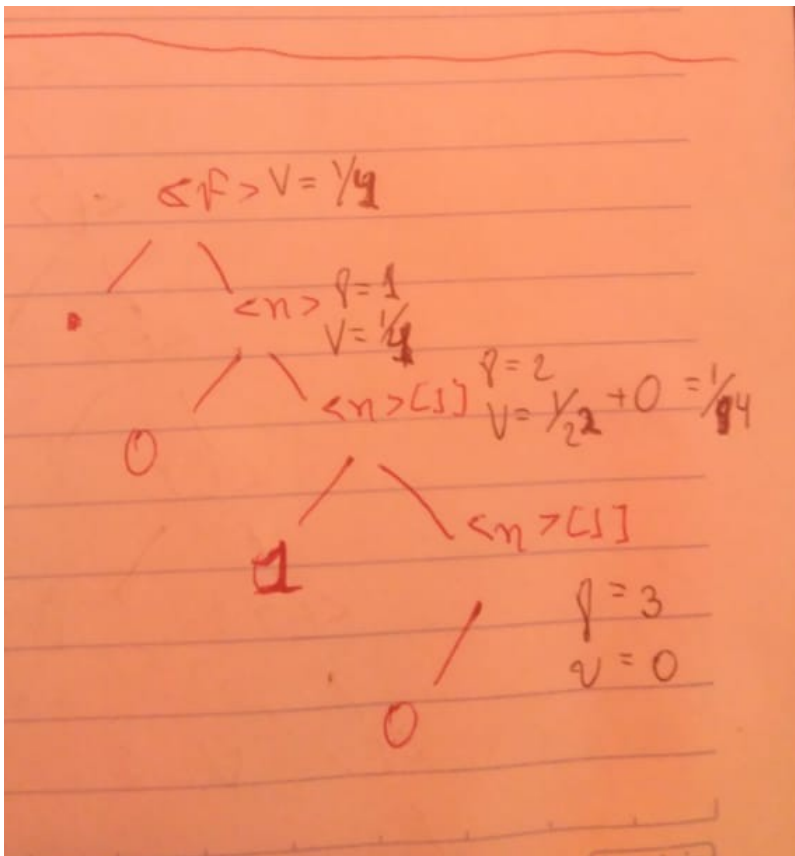 <F> V = 1/4
.
<n> p = 1
V = 1/4
0
<n>[1] p = 2
V = 1/2² + 0 = 1/4
1
<n>[1]
p = 3
v = 0
0